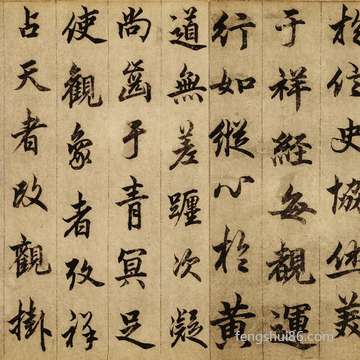 位史協
于祥經每觀運
行如縱心於黃
道無差躔次凝
尚齒于青冥足
使觀象者攷祥
占天者改觀掛
fengshui86.com